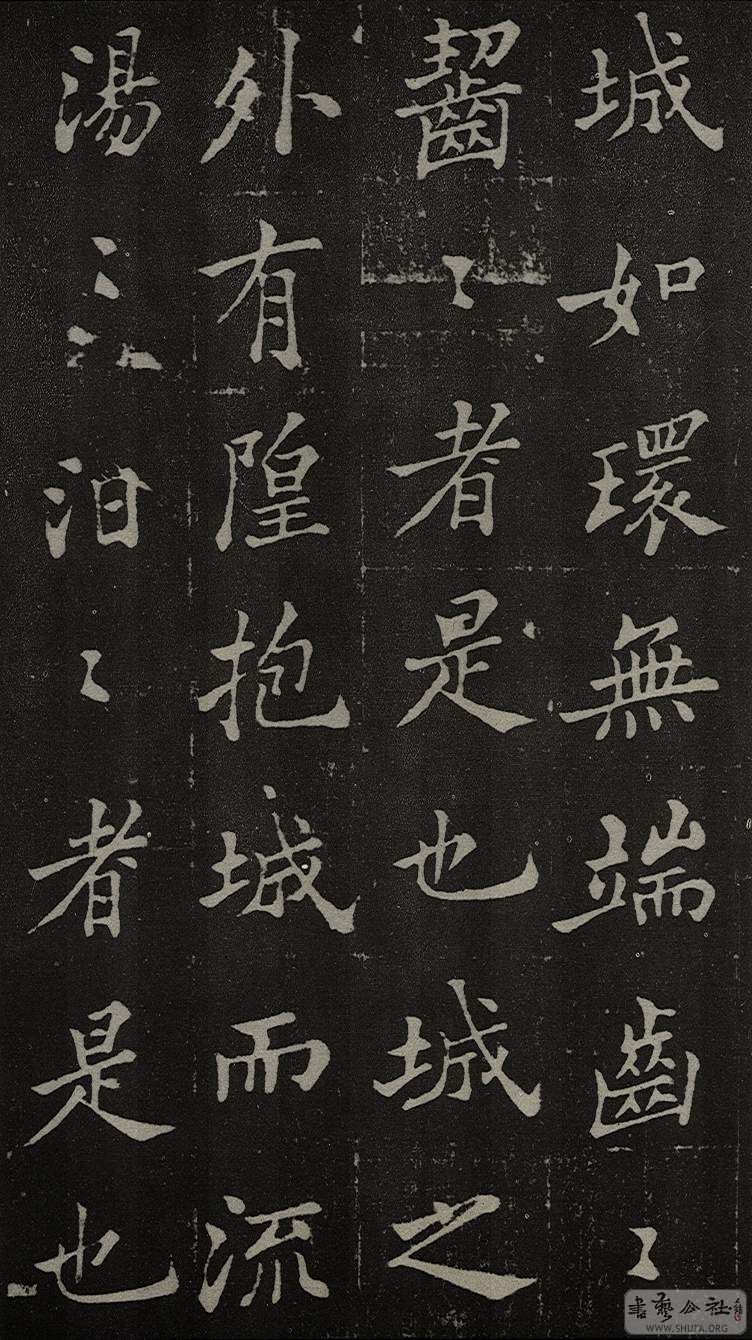 城如環無端齒〻
齧〻者是也城之
外有隍抱城而流
湯〻汩〻者是也
書藝公社
WWW.SHUFA.ORG